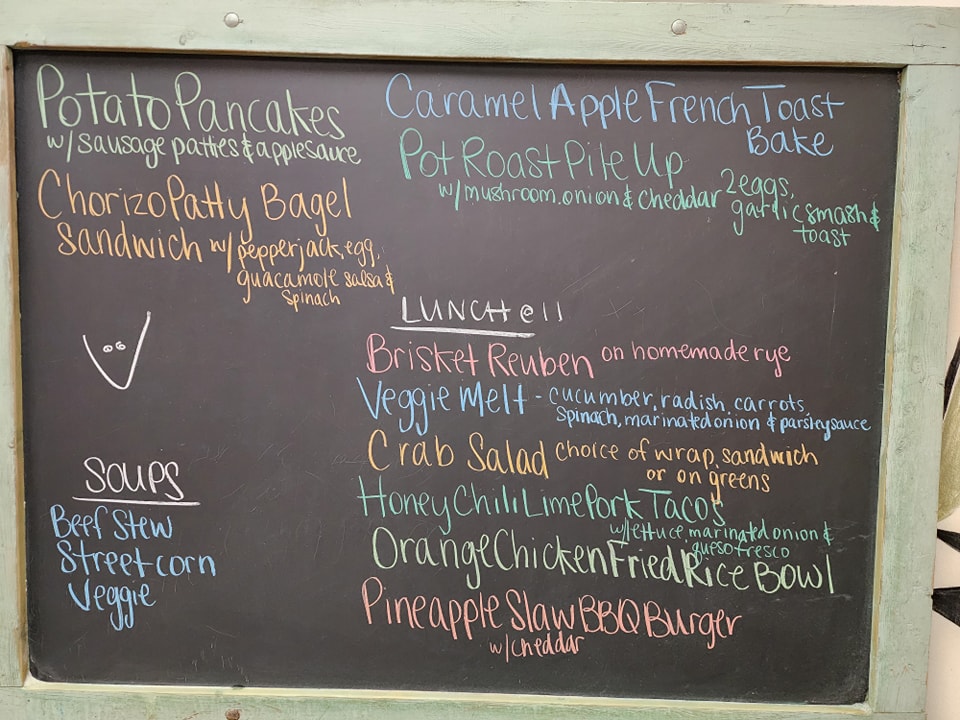 Potato Pancakes
w/ sausage patties & applesauce
Chorizo Patty Bagel
Sandwich w/ pepperjack, egg,
guacamole salsa &
spinach
Caramel Apple French Toast
Bake
Pot Roast Pile Up
w/ mushroom, onion & cheddar 2 eggs,
garlic smash &
toast
SOUPS
Beef Stew
Street corn
Veggie
LUNCH @ 11
Brisket Reuben on homemade rye
Veggie Melt - cucumber, radish, carrots,
spinach, marinated onion & parsley sauce
Crab Salad choice of wrap, sandwich
or on greens
Honey Chili Lime Pork Tacos
w/ lettuce, marinated onion &
queso fresco
Orange Chicken Fried Rice Bowl
Pineapple Slaw BBQ Burger
w/ cheddar